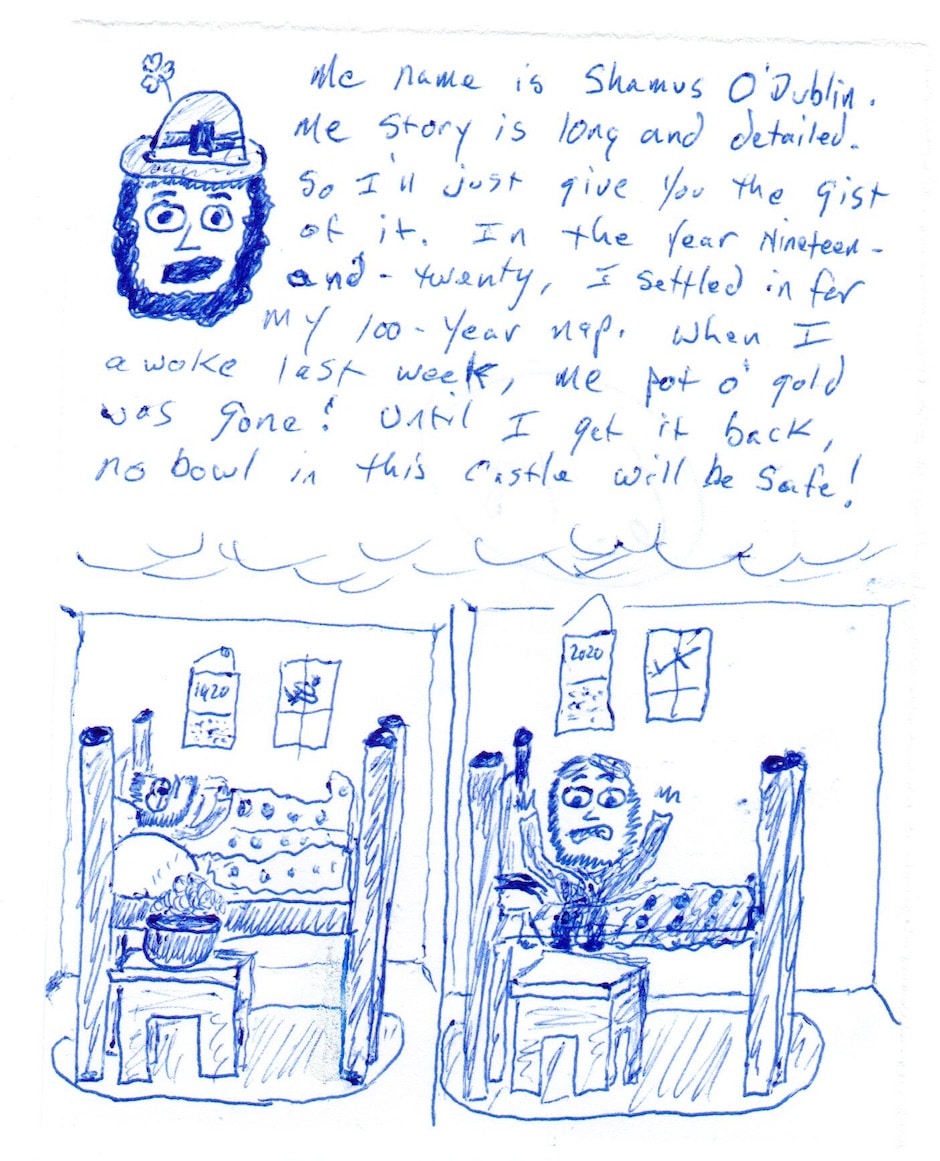 Me name is Shamus O'Dublin.
Me story is long and detailed.
So I'll just give you the gist
of it. In the year Nineteen-
and-twenty, I settled in for
my 100-year nap. When I
awoke last week, me pot o' gold
was gone! Until I get it back,
no bowl in this castle will be safe!
1920
2020